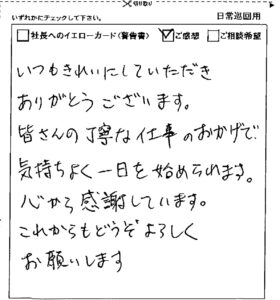 切り取り
いずれかにチェックして下さい。 日常巡回用
社長へのイエローカード(警告書) ご感想 ご相談希望
いつもきれいにしていただき
ありがとうございます。
皆さんの丁寧な仕事のおかげで
気持ちよく一日を始められます。
心から感謝しています。
これからもどうぞよろしく
お願いします